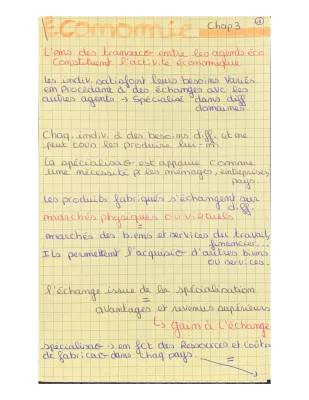 Economie Chap 3 1
L'ens des transac° entre les agents éco
Constituent l'activité économique
Les indiv. satisfont leurs besoins variés
en Procédant à des échanges avc les
autres agents → Spécialisé dans diff
domaines.
Chaq. indiv. à des besoins diff. et ne
peut tous les produire lui-m.
La spécialisa° est apparue comme
une nécessité pr les ménages, entreprises,
pays.
Les produits fabriqués s'échangent sur
diff.
marchés physiques ou virtuels
=
marchés des biens et services du travail,
financier...
Ils permettent l'acquisi° d'autres biens
ou services.
l'échange issue de la spécialisation
=
avantages et revenus supérieurs
↳ gain à l'échange
spécialisa° → en fct des Ressources et Coûts
de fabrica° dans chaq pays.
=